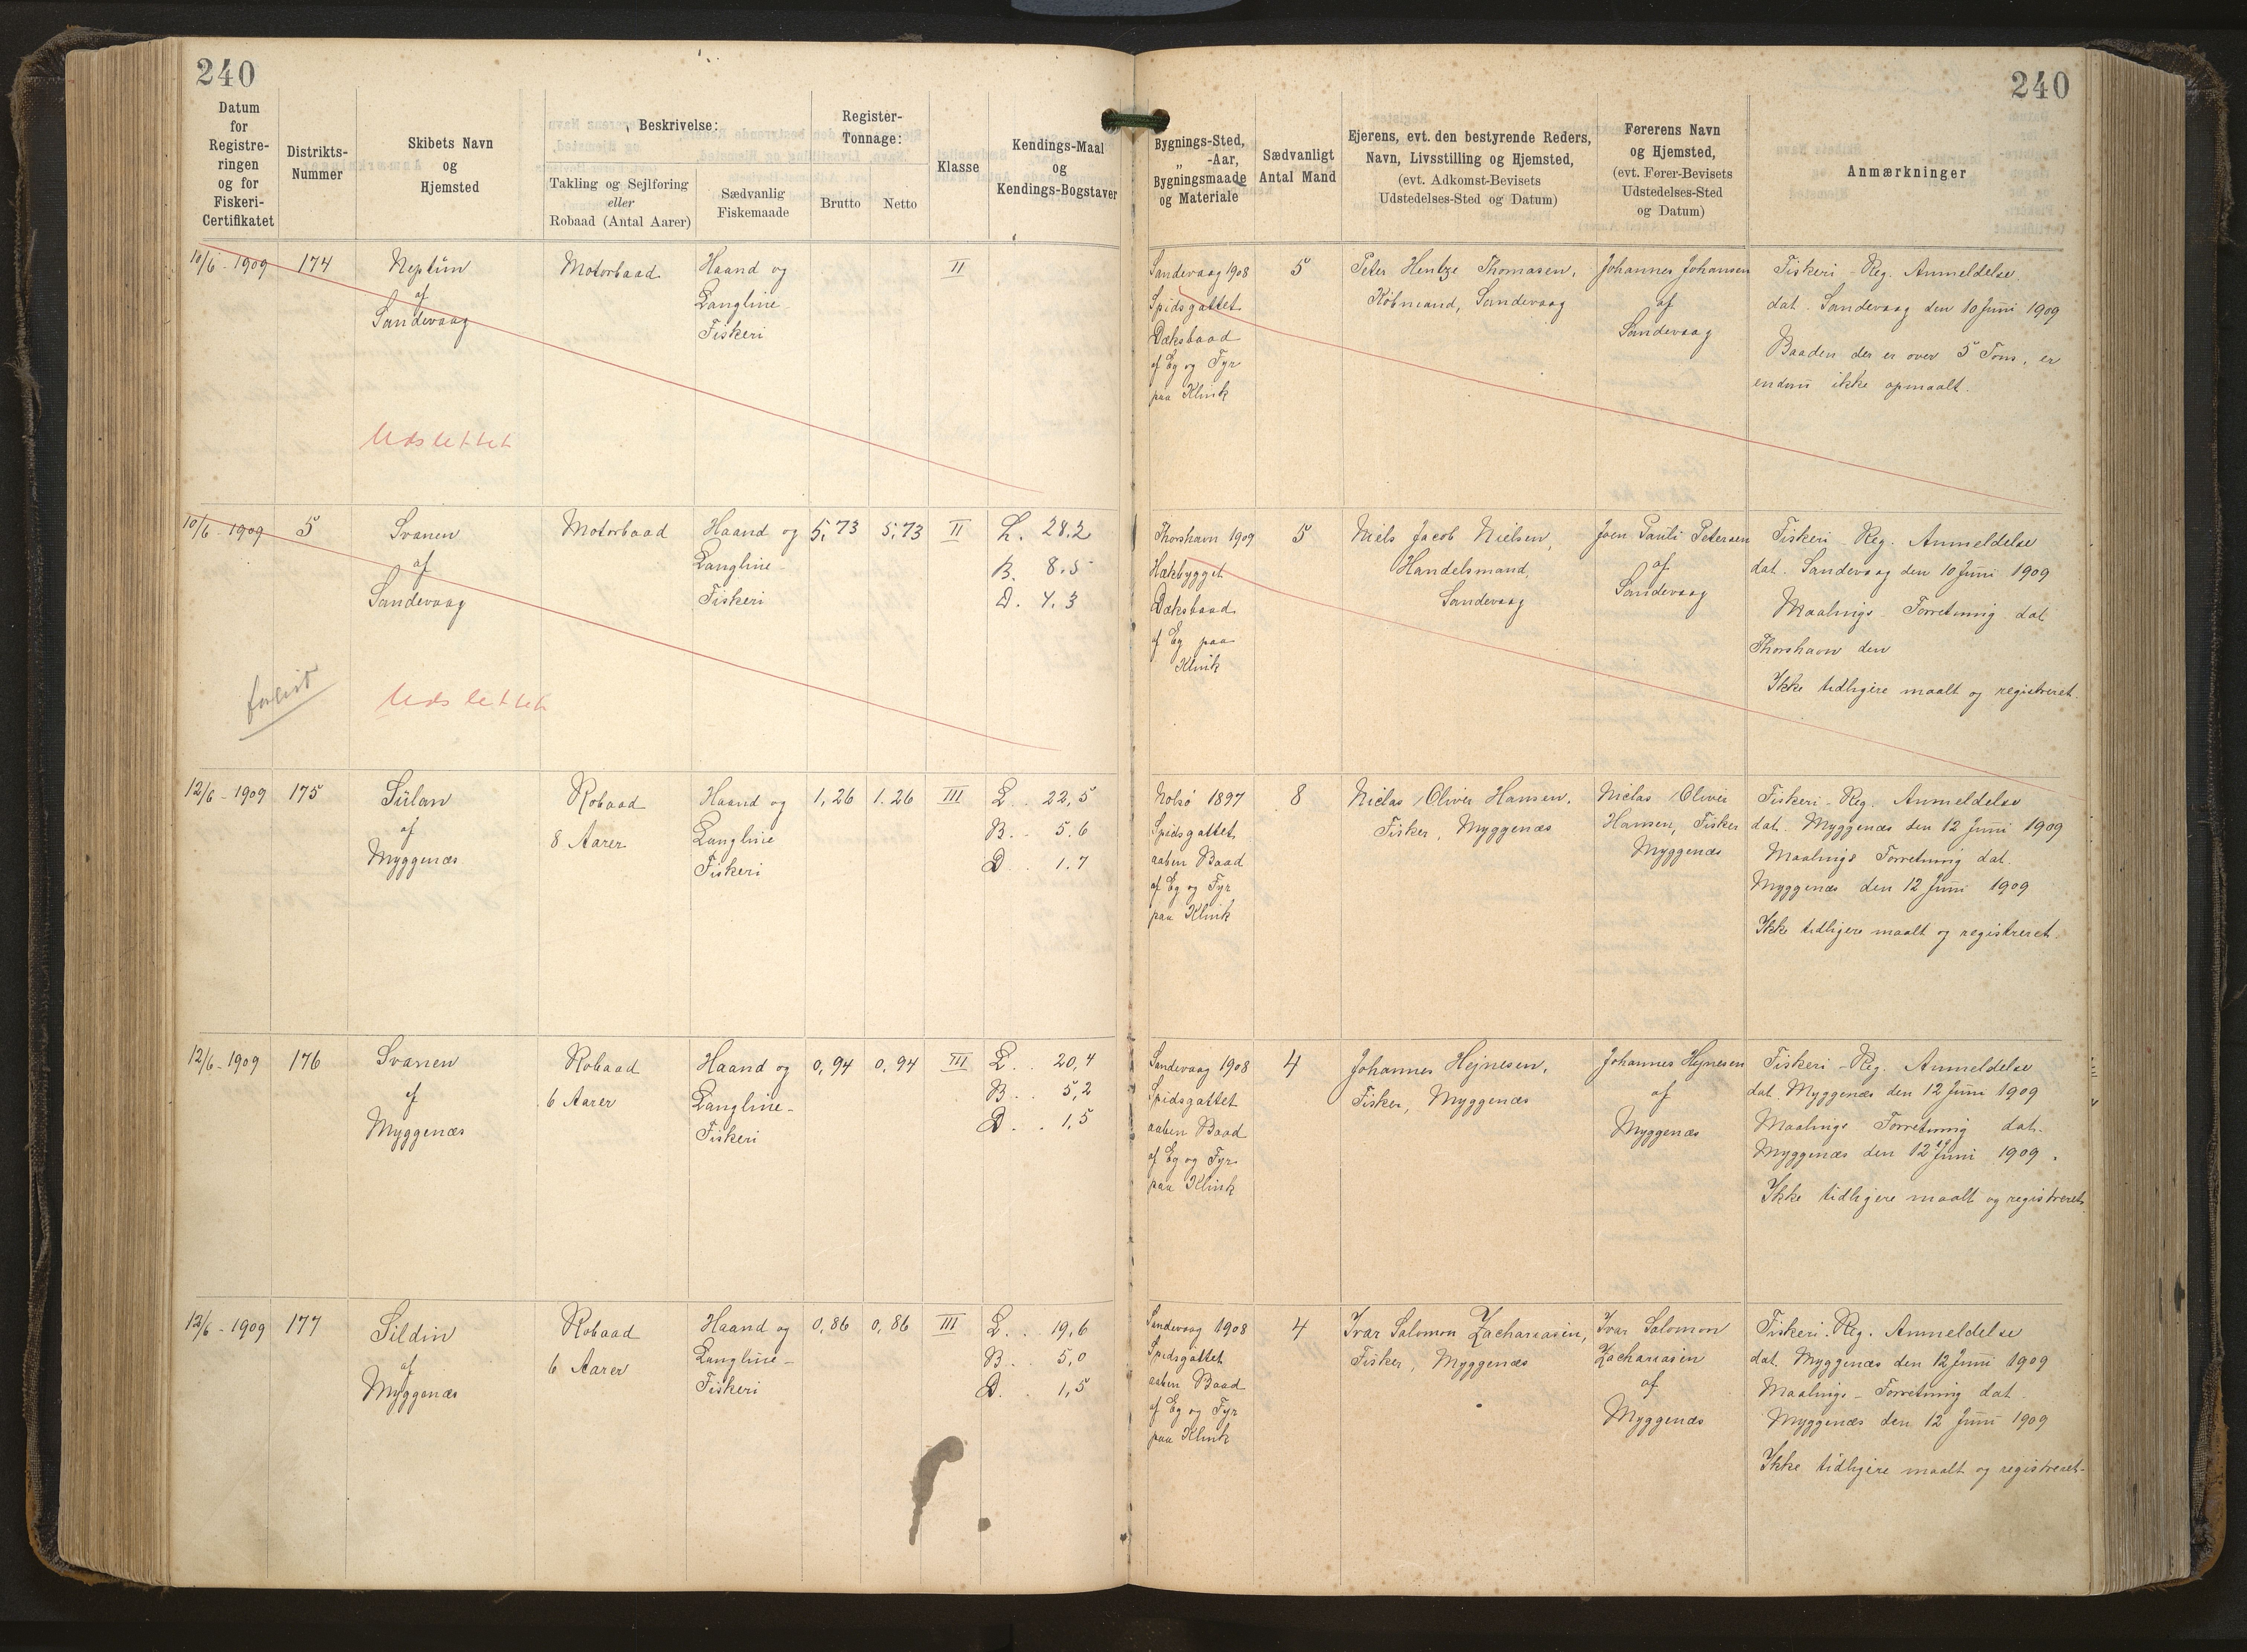 240
240
Datum
for
Registre-
ringen
og for
Fiskeri-
Certifikatet
Distrikts-
Nummer
Skibets Navn
og
Hjemsted
Beskrivelse:
Takling og Sejlføring
eller
Robaad (Antal Aarer)
Sædvanlig
Fiskemaade
Register-
Tonnage:
Brutto
Netto
Klasse
Kendings-Maal
og
Kendings-Bogstaver
Bygnings-Sted,
„ -Aar,
Bygningsmaade
og Materiale
Sædvanligt
Antal Mand
Ejerens, evt. den bestyrende Reders,
Navn, Livsstilling og Hjemsted,
(evt. Adkomst-Bevisets
Udstedelses-Sted og Datum)
Førerens Navn
og Hjemsted,
(evt. Fører-Bevisets
Udstedelses-Sted
og Datum)
Anmærkninger
10/6 - 1909
174
Neptün
af
Sandevaag
Motorbaad
Haand og
Langline-
Fiskeri
II
Sandevaag 1908
Spidsgattet
Dæksbaad
af Eg og Fyr
paa Klink
5
Peter Hentze Thomasen,
Købmand, Sandevaag
Johannes Johansen
af
Sandevaag
Fiskeri - Reg. Anmeldelse
dat. Sandevaag den 10 Juni 1909
Baaden der er over 5 Tons, er
endnu ikke opmaalt.
Udslettet
10/6 - 1909
5
Svanen
af
Sandevaag
Motorbaad
Haand og
Langline-
Fiskeri
5,73
5,73
II
L. 28.2
B. 8.5
D. 4.3
Thorshavn 1909
Hækbygget
Dæksbaad
af Eg paa
Klink
5
Niels Jacob Nielsen,
Handelsmand,
Sandevaag
Joen Pauli Petersen
af
Sandevaag
Fiskeri - Reg. Anmeldelse
dat. Sandevaag den 10 Juni 1909
Maalings - Forretning dat
Thorshavn den
Ikke tidligere maalt og registreret.
forlist
Udslettet
12/6 - 1909
175
Sülan
af
Myggenæs
Robaad
8 Aarer
Haand og
Langline
Fiskeri
1,26
1.26
III
L. . 22,5
B. . 5.6
D . . 1.7
Nolsø 1897
Spidsgattet
aaben Baad
af Eg og Fyr
paa Klink
8
Niclas Oliver Hansen,
Fisker, Myggenæs
Niclas Oliver
Hansen, Fisker
Myggenæs
Fiskeri - Reg. Anmeldelse
dat. Myggenæs den 12 Juni 1909
Maalings Forretning dat.
Myggenæs den 12 Juni 1909
Ikke tidligere maalt og registreret.
12/6 - 1909
176
Svanen
af
Myggenæs
Robaad
6 Aarer
Haand og
Langline-
Fiskeri
0,94
0,94
III
L. . 20,4
B. . 5,2
D . . 1,5
Sandevaag 1908
Spidsgattet
aaben Baad
af Eg og Fyr
paa Klink
4
Johannes Hejnesen,
Fisker, Myggenæs
Johannes Hejnesen
af
Myggenæs
Fiskeri - Reg. Anmeldelse
dat. Myggenæs den 12 Juni 1909
Maalings Forretning dat.
Myggenæs den 12 Juni 1909.
Ikke tidligere maalt og registreret.
12/6 - 1909
177
Sildin
af
Myggenæs
Robaad
6 Aarer
Haand og
Langline-
Fiskeri
0,86
0,86
III
L. . 19,6
B. . 5,0
D. . 1,5
Sandevaag 1908
Spidsgattet
aaben Baad
af Eg og Fyr
paa Klink
4
Ivar Salomon Zachariasen,
Fisker, Myggenæs
Ivar Salomon
Zachariasen
af
Myggenæs
Fiskeri-Reg. Anmeldelse
dat. Myggenæs den 12 Juni 1909
Maalings - Forretning dat.
Myggenæs den 12 Juni 1909
Ikke tidligere maalt og registreret.